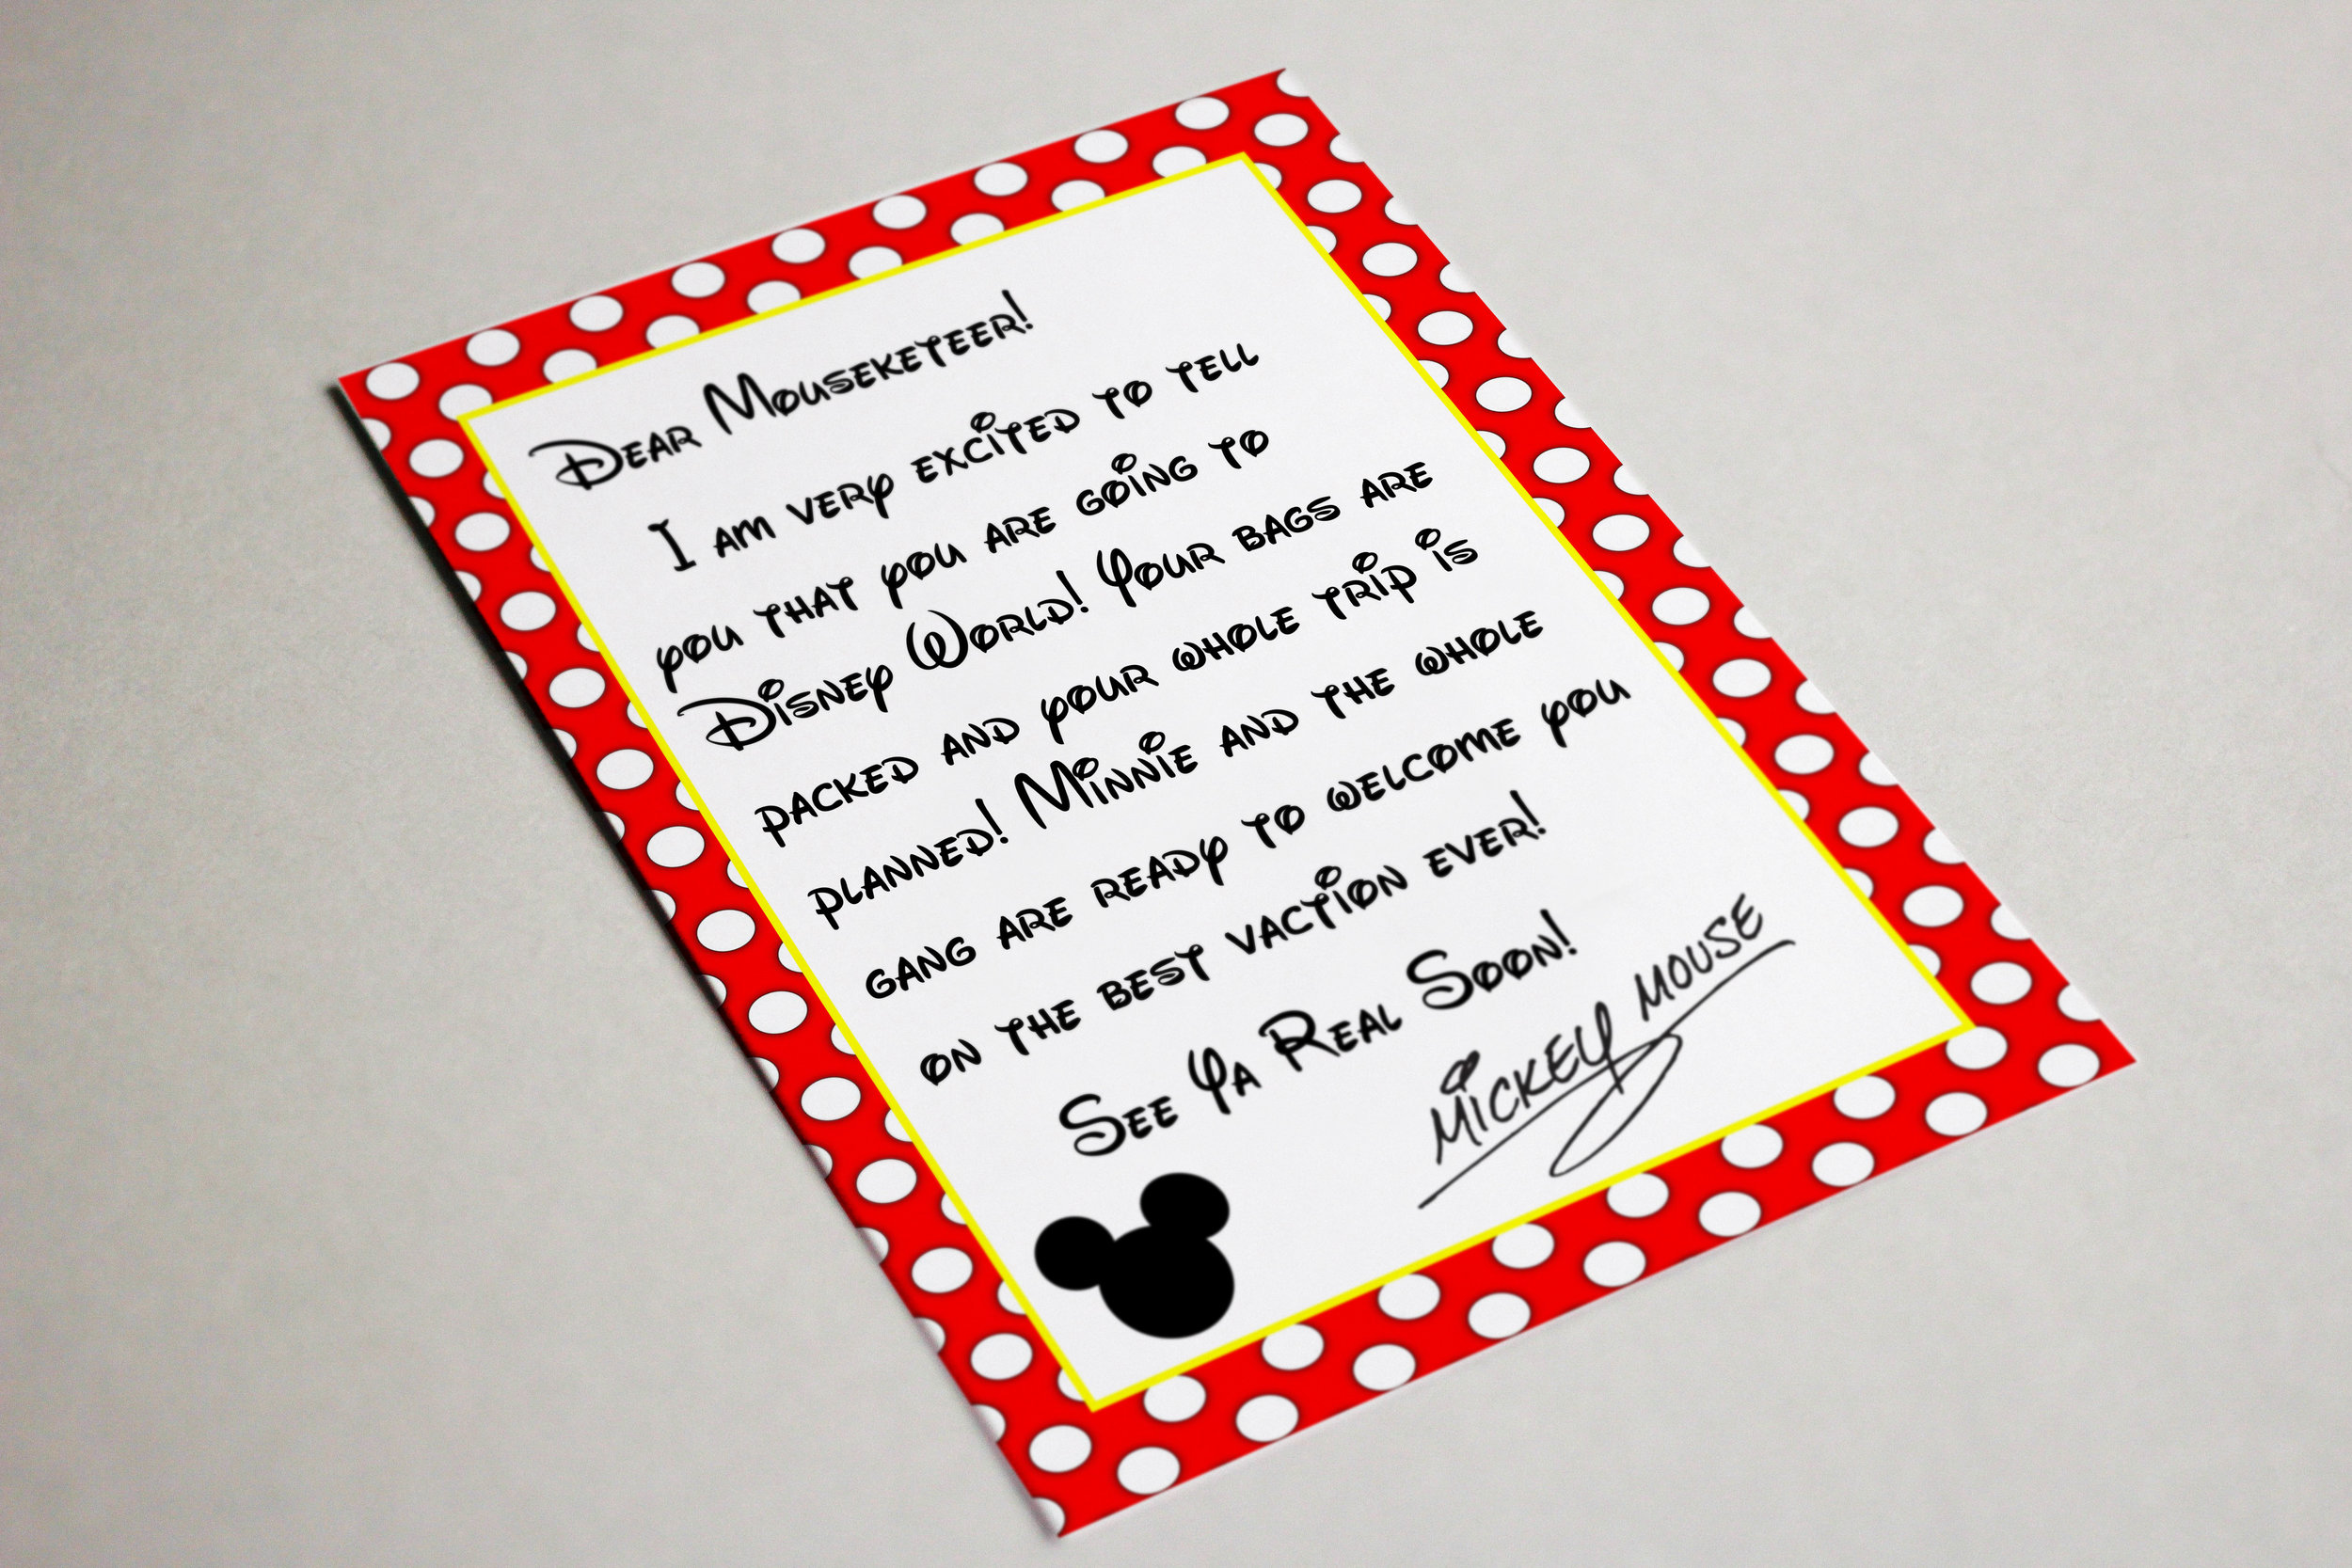 Dear Mouseketeer!
I am very excited to tell
you that you are going to
Disney World! Your bags are
packed and your whole trip is
planned! Minnie and the whole
gang are ready to welcome you
on the best vaction ever!
See Ya Real Soon!
Mickey Mouse